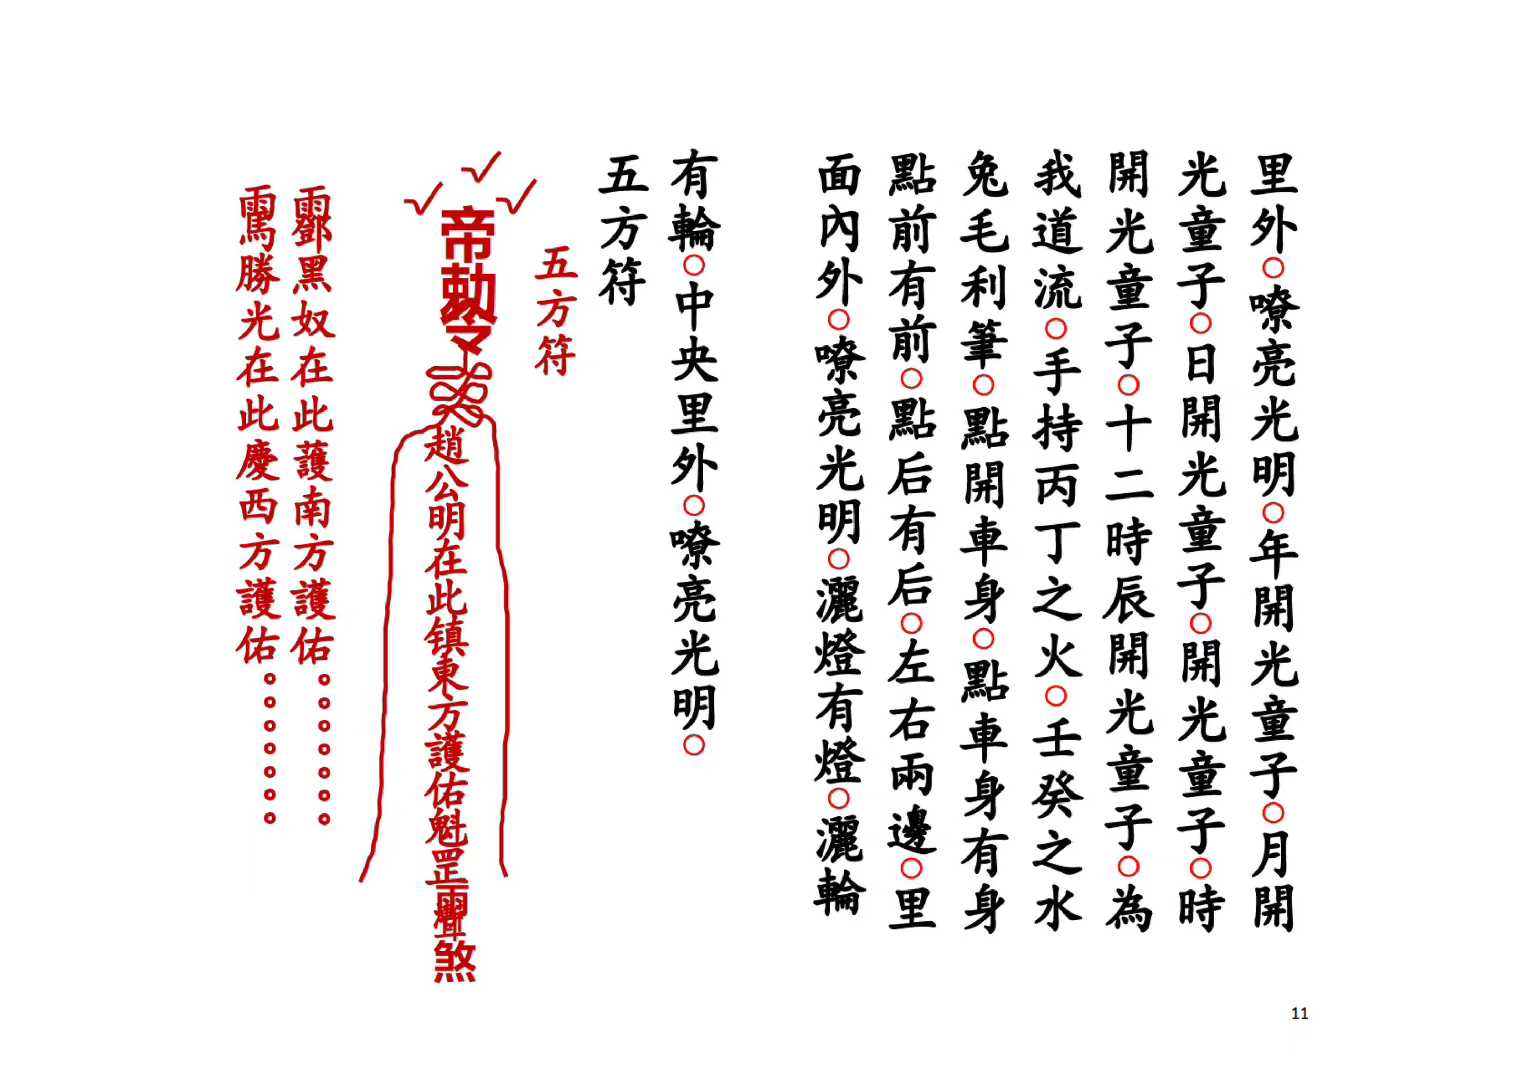 里外○嘹亮光明○年開光童子○月開
光童子○日開光童子○開光童子○時
開光童子○十二時辰開光童子○為
我道流○手持丙丁之火○壬癸之水
兔毛利筆○點開車身○點車身有身
點前有前○點后有后○左右兩邊○里
面內外○嘹亮光明○灑燈有燈○灑輪
有輪○中央里外○嘹亮光明○
五方符
五方符
帝勅令
趙公明在此镇東方護佑魁罡 煞
鄧黑奴在此護南方護佑。。。。。。。
馬勝光在此慶西方護佑。。。。。。。
11